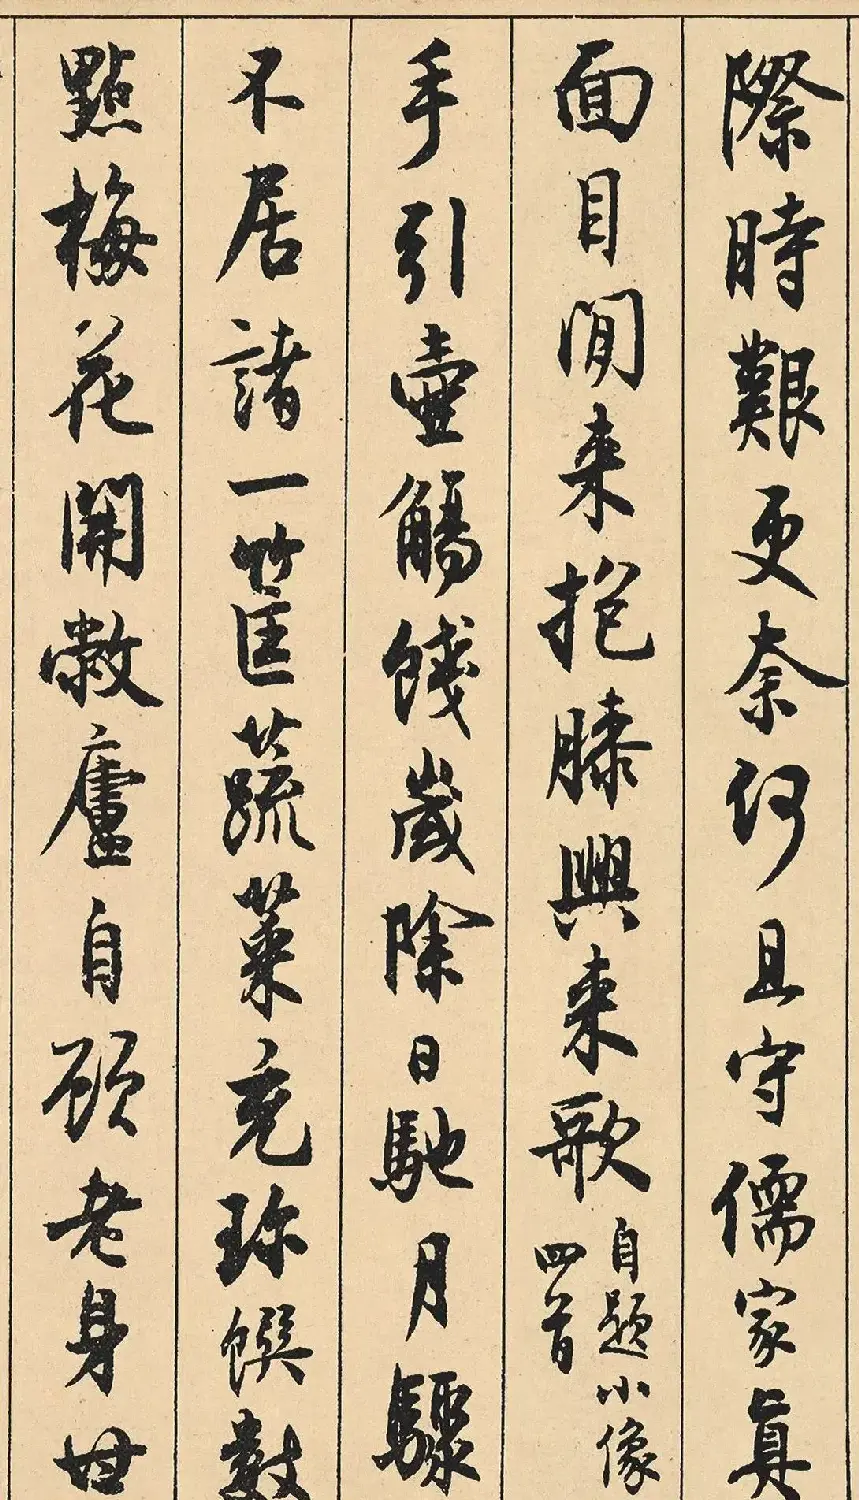 際時艱更奈何且守儒家真
面目閒来抱膝興来歌
自題小像
四首
手引壺觴餞歲除日馳月驟
不居諸一筐蔬菜充珍饌數
點梅花開敝廬自顧老身世